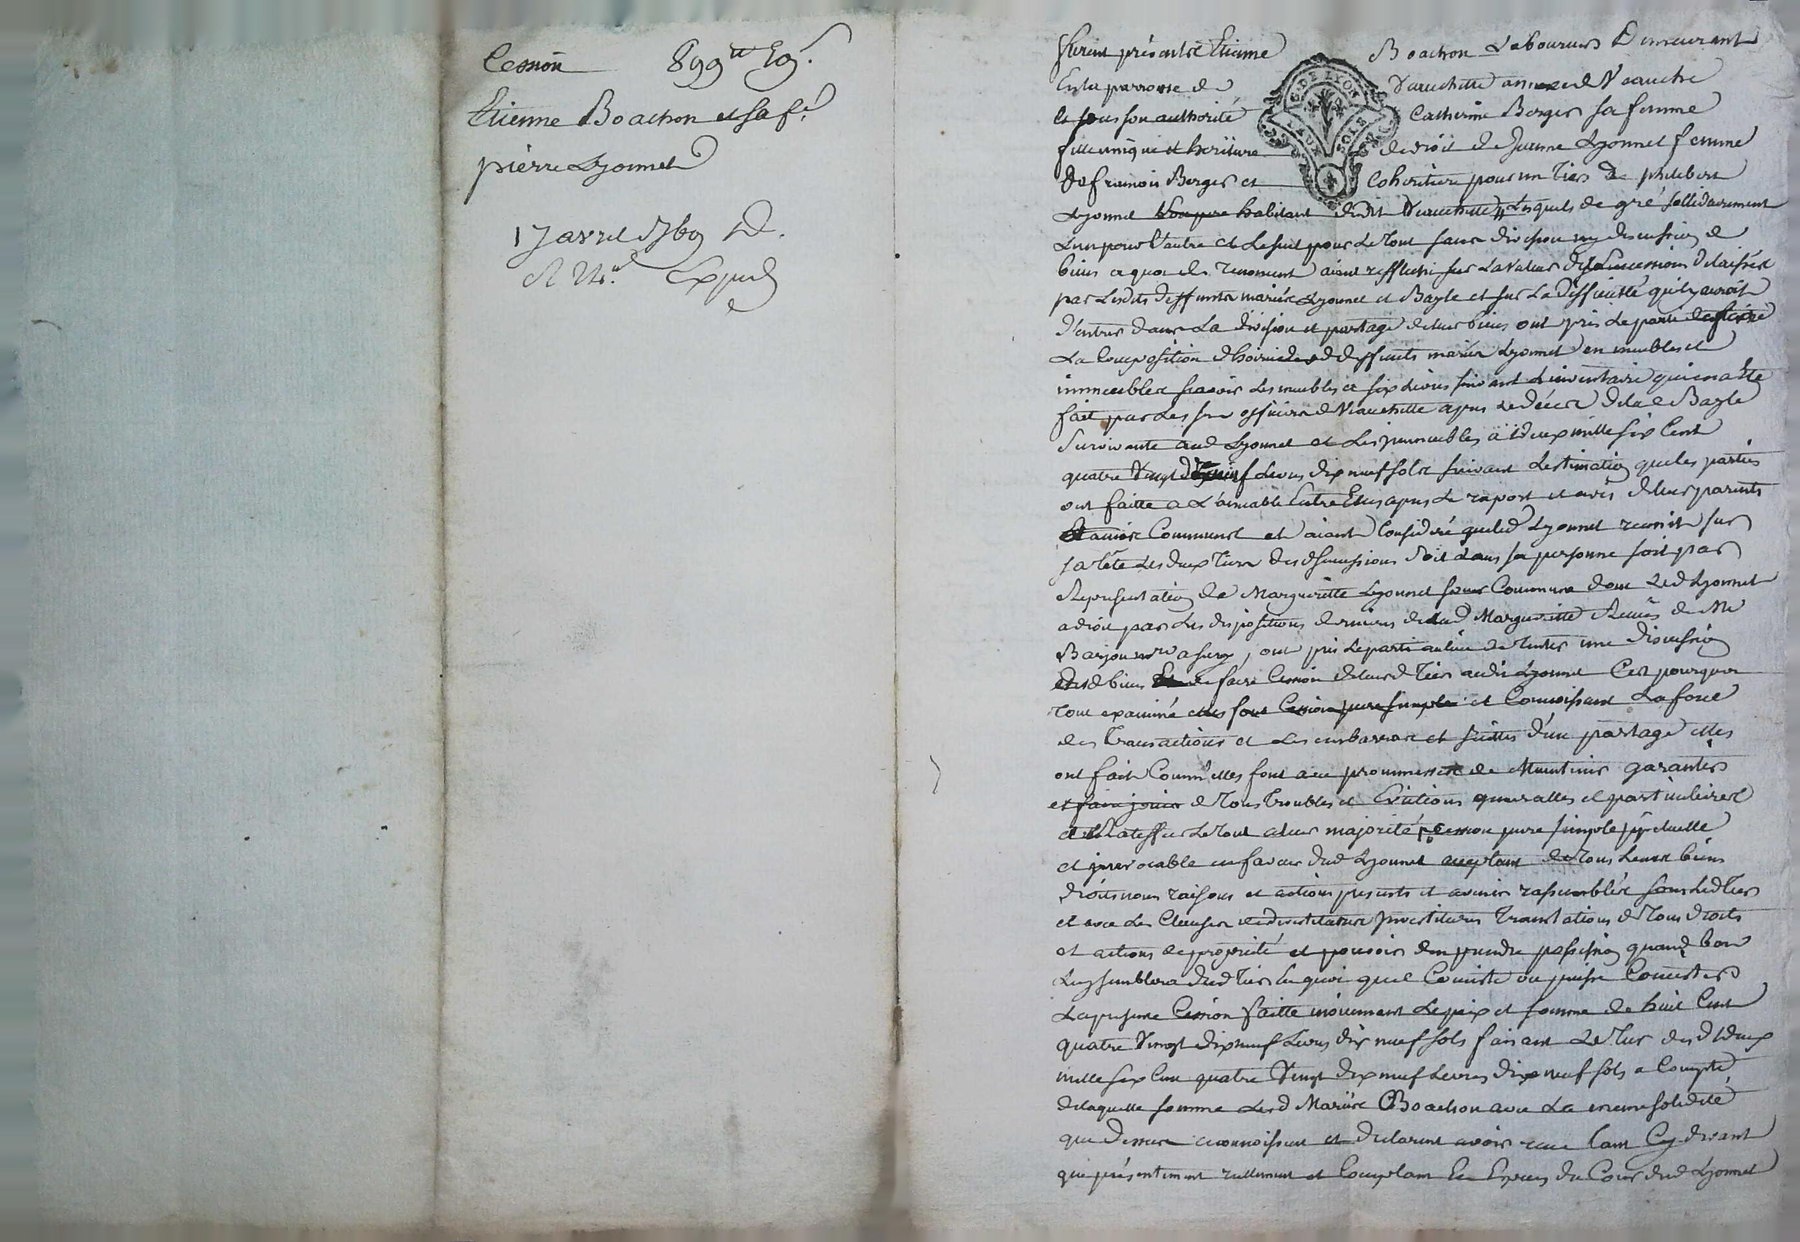 Cession 899 tt 19 s.
Etienne Boachon et sa f.e
pierre Lyonnet
17 avril 1769 D.
Exped
G. DE LYON
LA UN SOLS
furent présents Etienne Boachon Laboureur Demeurant
En la parroisse de Vauchette annexe de Veauche
et sous son authorité Catherine Berger sa femme
fille unique et héritiere de droit de Jeanne Lyonnet femme
de francois Berger et Cohéritiere pour un Tiers de philibert
Lyonnet habitant dudit Veauchette, Lesquels de gré sollidairement
L'un pour l'autre et Le seul pour Le tout sans division ny discussion de
biens a quoy ils renoncent aiant refflechi sur La valeur des successions delaissées
par Lesdits deffunts mariés Lyonnet et Bayle et sur La difficulté qu'il y auroit
d'entrer dans La division et partage de leurs biens ont pris Le parti
La Composition d'hoirie deffunts mariés Lyonnet en meubles et
immeubles scavoir Les meubles a six Livres suivant L'inventaire qui en a été
fait par Les srs officiers de Veauchette apres Le décès de lad Bayle
survivante aud Lyonnet et Les immeubles à deux mille six Cent
quatre Vingt dix neuf Livres dix neuf sols suivant L'estimation que les parties
ont faitte a L'aimable Entre Elles apres Le raport et avis de leurs parents
et amis Communs et aiant Considéré que led Lyonnet reunit sur
sa tête Les deux Tiers desd successions soit dans sa personne soit par
Representation de Margueritte Lyonnet soeur Commune dont Led Lyonnet
a droit par Les dispositions dernieres de lad Margueritte Recües de Me
ont pris Le parti au lieu de tenter une division
desd biens de faire Cession de leurd Tiers audit Lyonnet C'est pourquoi
Tout examiné elles font Cession pure simple et Connoissant La force
des Transactions et Les embarras et suittes d'un partage elles
ont fait Comm'elles font avec promesse de Maintenir garantir
et faire jouir de Tous Troubles et Evictions generalles et particulieres
Le tout a leur majorité Cession pure simple perpetuelle
et irrevocable en faveur dud Lyonnet acceptant de Tous Leurs biens
droits noms raisons et actions presents et avenir rassemblés sous Led Tiers
et avec Les Clauses de devestiture Investiture Translations de Tous droits
et actions de propriété et pouvoir d'en prendre possession quand bon
Luy semblera dud Tiers en quoi qu'il Consiste ou puisse Consister
La presente Cession faitte moiennant Le prix et somme de huit Cent
quatre Vingt dix neuf Livres dix neuf sols faisant Le Tiers desd deux
mille six Cent quatre Vingt dix neuf Livres dix neuf sols a Compte
de laquelle somme Lesd Mariés Boachon avec La meme solidité
que dessus reconnoissent et declarent avoir reçu tant Cy devant
que présentement réellement et Comptant En Especes du Cours dud Lyonnet